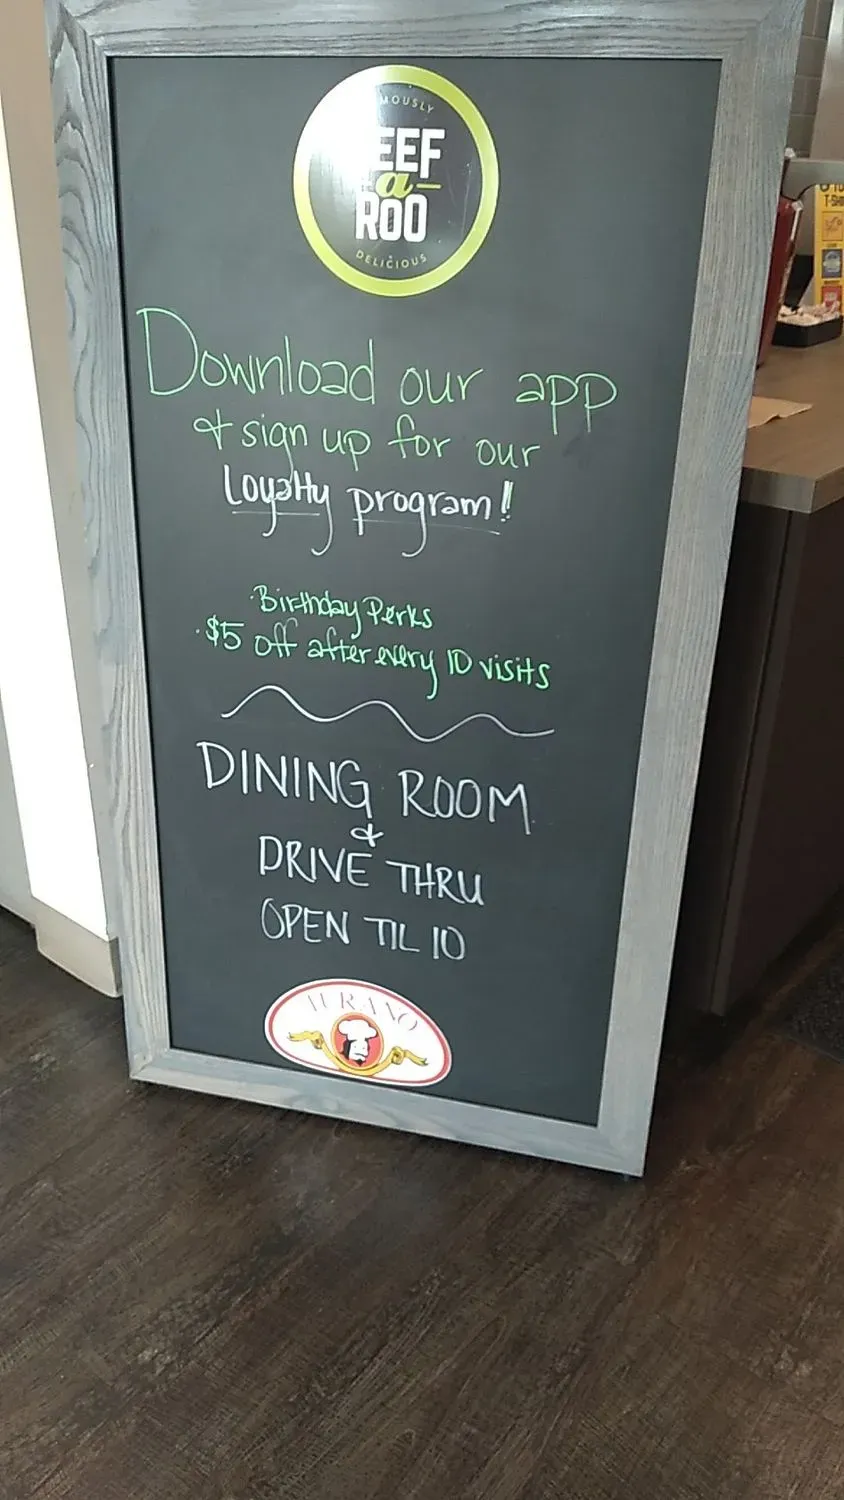 EEF
a
ROO
DELICIOUS
Download our app
& sign up for our
Loyalty program!
·Birthday Perks
·$5 off after every 10 visits
DINING ROOM
&
DRIVE THRU
OPEN TIL 10
TURANO